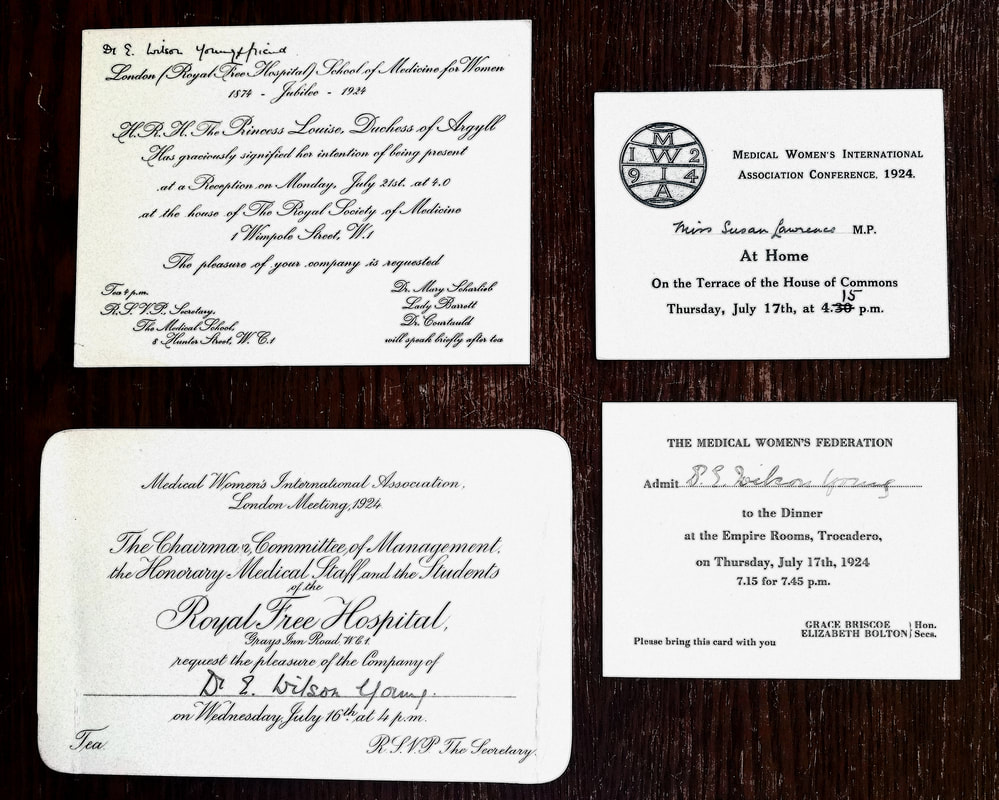 Dr E. Wilson Young & friend
London (Royal Free Hospital) School of Medicine for Women
1874 - Jubilee - 1924
H.R.H. The Princess Louise, Duchess of Argyll
Has graciously signified her intention of being present
at a Reception on Monday, July 21st. at 4.0
at the house of The Royal Society of Medicine
1 Wimpole Street, W.1
The pleasure of your company is requested
Tea 4 p.m.
R.S.V.P. Secretary,
The Medical School,
8 Hunter Street, W.C.1
Dr. Mary Scharlieb
Lady Barrett
Dr. Courtauld
will speak briefly after tea
M
1 W 2
9 I 4
A
MEDICAL WOMEN'S INTERNATIONAL
ASSOCIATION CONFERENCE, 1924.
Miss Susan Lawrence M.P.
At Home
On the Terrace of the House of Commons
15
Thursday, July 17th, at 4.30 p.m.
Medical Women's International Association.
London Meeting, 1924
The Chairman, Committee of Management,
the Honorary Medical Staff and the Students
of the
Royal Free Hospital,
Grays Inn Road. W.C.1.
request the pleasure of the Company of
Dr E. Wilson Young.
on Wednesday July 16th at 4 p.m.
Tea.
R.S.V.P The Secretary.
THE MEDICAL WOMEN'S FEDERATION
Admit D. E. Wilson Young
to the Dinner
at the Empire Rooms, Trocadero,
on Thursday, July 17th, 1924
7.15 for 7.45 p.m.
GRACE BRISCOE } Hon.
ELIZABETH BOLTON } Secs.
Please bring this card with you